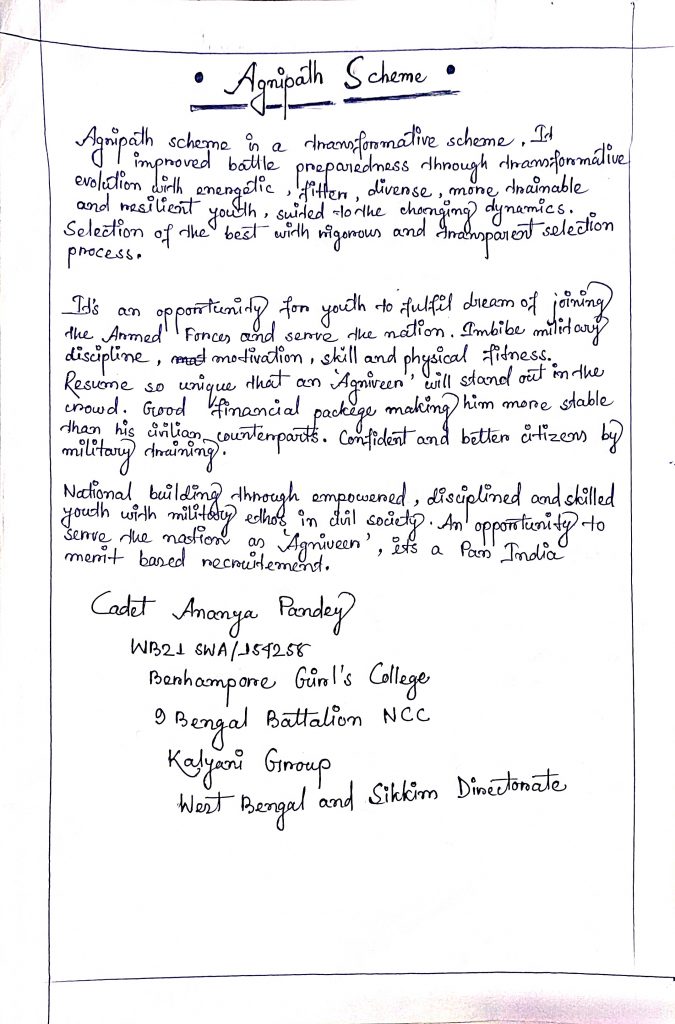 • Agnipath Scheme •
Agnipath scheme is a transformative scheme. It
improved battle preparedness through transformative
evolution with energetic, fitter, diverse, more trainable
and resilient youth, suited to the changing dynamics.
Selection of the best with rigorous and transparent selection
process.
It's an opportunity for youth to fulfil dream of joining
the Armed Forces and serve the nation. Imbibe military
discipline, motivation, skill and physical fitness.
Resume so unique that an 'Agniveer' will stand out in the
crowd. Good financial packege making him more stable
than his civilian counterparts. Confident and better citizens by
military training.
National building through empowered, disciplined and skilled
youth with military ethos in civil society. An opportunity to
serve the nation as 'Agniveer', its a Pan India
merit based recruitement.
Cadet Ananya Pandey
WB21 SWA/154258
Berhampore Girl's College
9 Bengal Battalion NCC
Kalyani Group
West Bengal and Sikkim Directorate